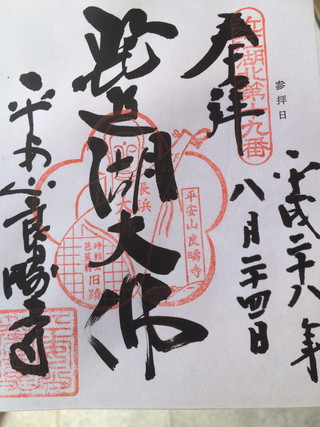 参拝日
平成二十八年
八月二十四日
奉拝
江州湖北第十九番
琵琶湖大仏
長浜
平安山良疇寺
旧蹟
平安山良疇寺